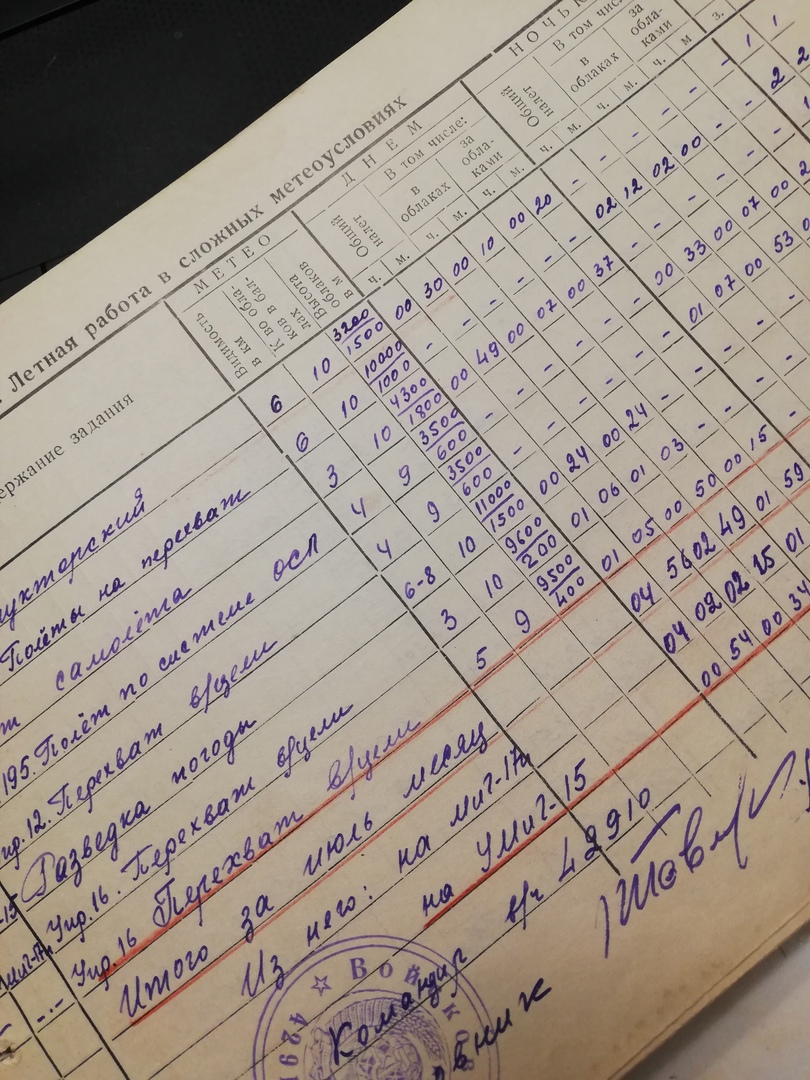 Летная работа в сложных метеоусловиях
держание задания
МЕТЕО
Видимость в км
К-во обла-
ков в бал-
лах
Высота
облаков
в м
ДНЕМ
Общий
налет
В том числе:
в
облаках
за
обла-
ками
ч. м. ч. м. ч. м.
НОЧЬЮ
Общий
налет
В том числе
в
облаках
за
обла-
ками
ч. м. ч. м. ч. м з.
уктерский 6 10 3200 1500 00 30 00 10 00 20 - - - - - 1 1
Полёты на перехват 6 10 10000 1000 - - - - - - 02 12 02 00 - - 2 2
самолёта 3 10 4300 1800 00 49 00 07 00 37 - - - - - -
195. Полёт по системе ОСП 4 9 3500 600 - - - - - - 00 33 00 07 00 2
Упр.12. Перехват в/цели 4 9 3500 600 - - - - - - 01 07 00 53 0
Разведка погоды 6-8 10 11000 1500 00 24 00 24 - - - -
Упр.16. Перехват в/цели 3 10 9600 200 01 06 01 03 - - - -
Упр.16 Перехват в/цели 5 9 9500 400 01 05 00 50 00 15 -
Итого за июль месяц 04 56 02 49 01 59
Из него: на МиГ-17п 04 02 02 15 01
на УМиГ-15 00 54 00 34
Командир в/ч 42910